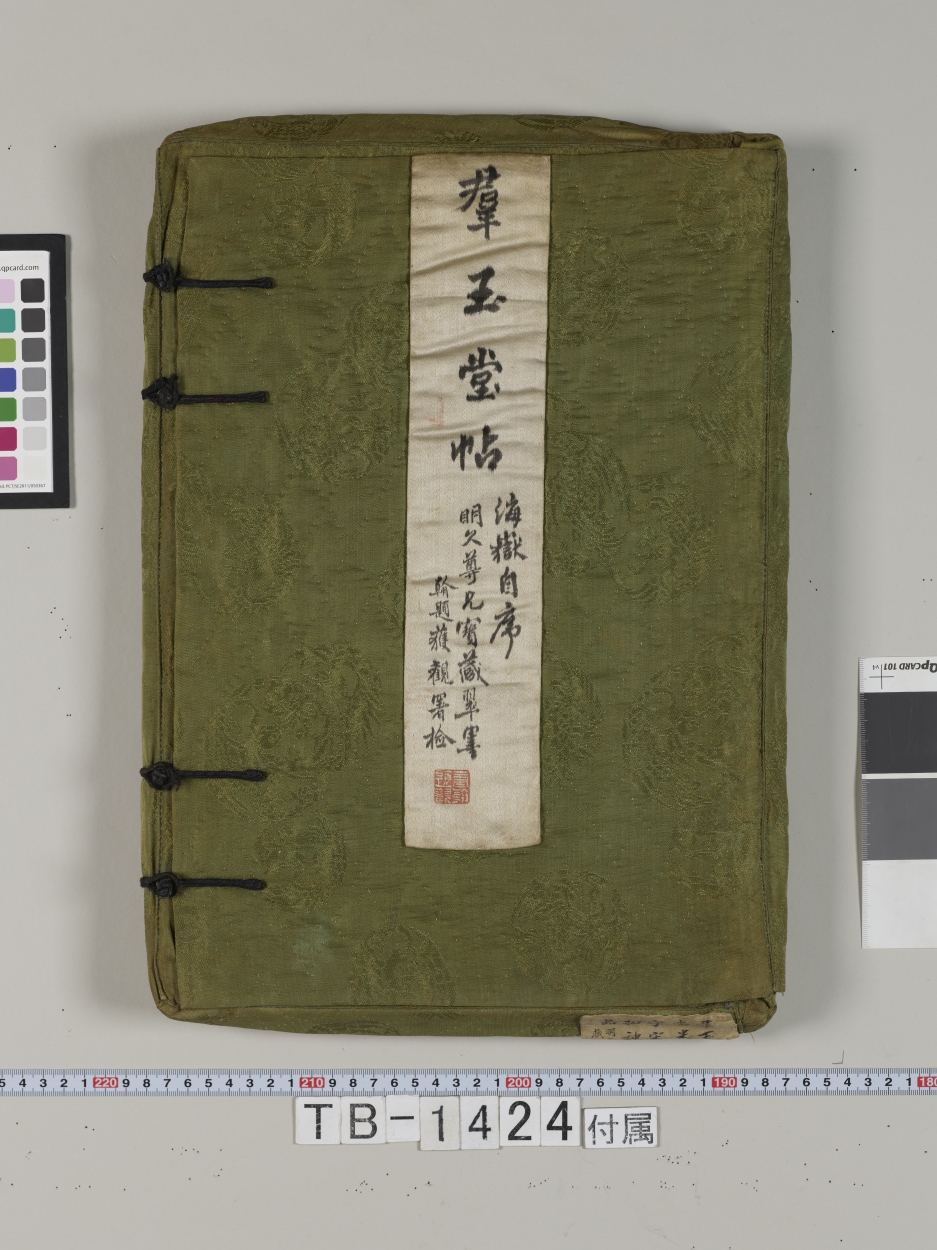 羣玉堂帖
海嶽自序
明久尊兄寶藏翠墨
翰題獲觀署檢
qpcard.com
QPCARD 101 v1
5 4 3 2 1 220 9 8 7 6 5 4 3 2 1 210 9 8 7 6 5 4 3 2 1 200 9 8 7 6 5 4 3 2 1 190 9 8 7 6 5 4 3 2 1 180
TB-1424付属